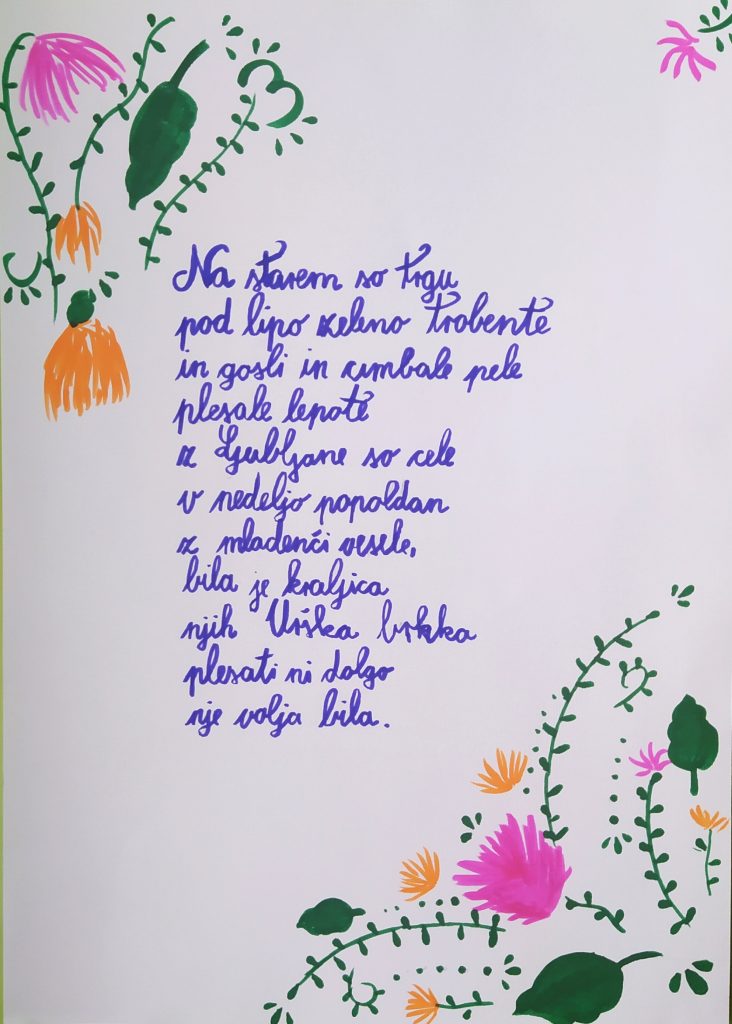 Na starem so trgu
pod lipo zeleno trobente
in gosli in cimbale pele
plesale lepote
z Ljubljane so cele
v nedeljo popoldan
z mladenči vesele,
bila je kraljica
njih Urška brhka
plesati ni dolgo
nje volja bila.